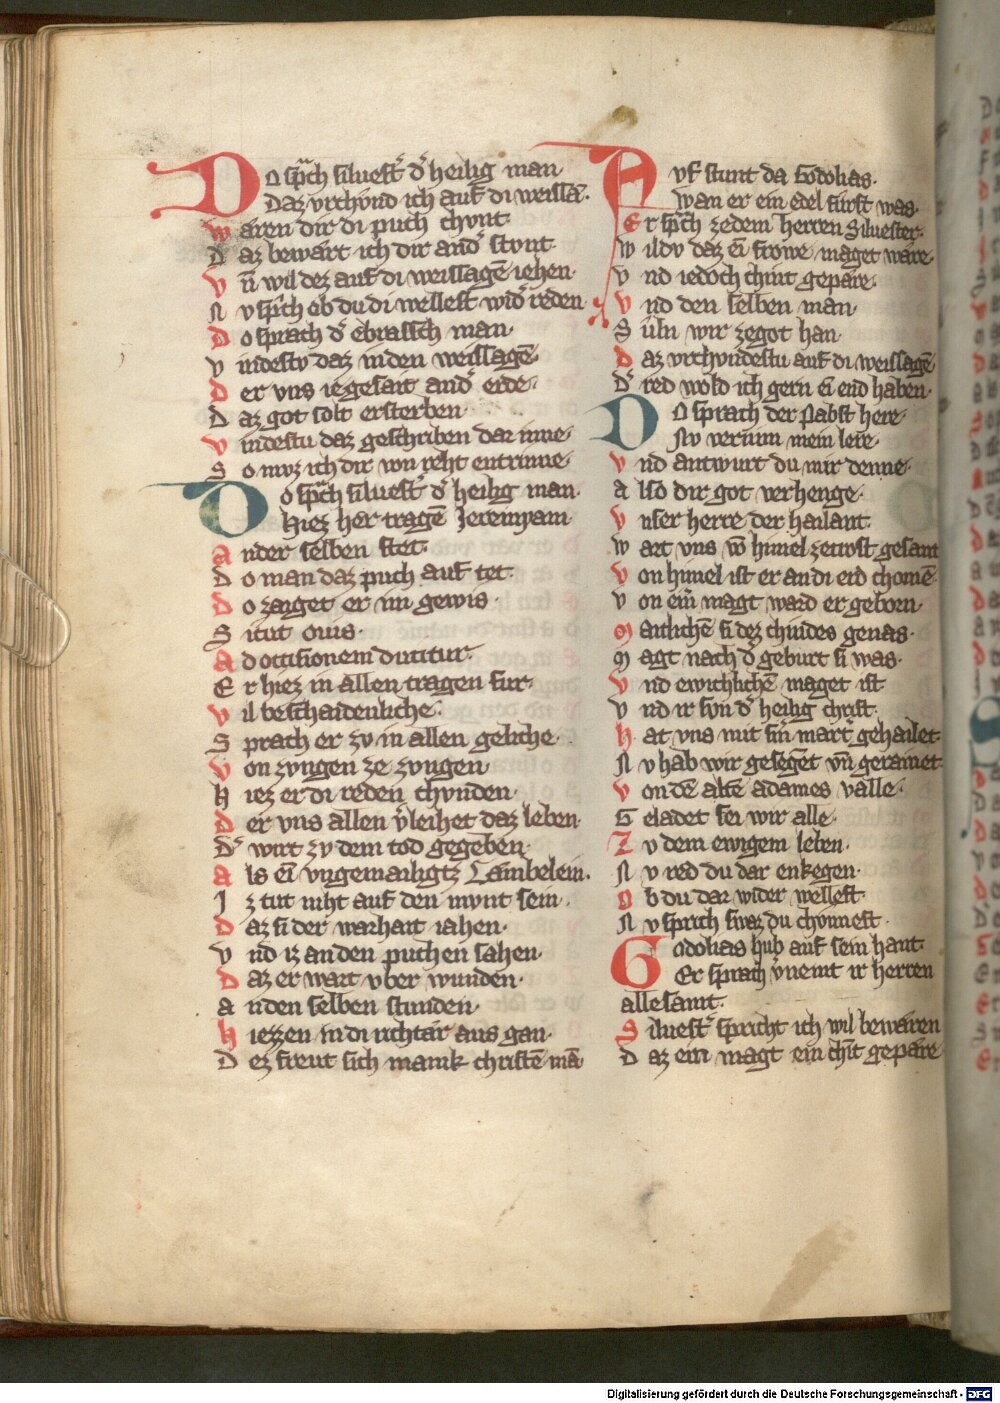 DO sprach siluest' d' heilig man
Daz vrchvnd ich auf di weissa.
waren dir di puch chvnt
D az bewart ich dir and' stvnt.
V n wil dez auf di weissagē iehen.
N v sprich ob du di wellest wid' reden
D o sprach d' ebraisch man.
V indestv daz in den weissagē.
D er vns ie gesait and' erde.
D az got solt ersterben.
V indestu daz geschriben dar inne.
S o mvz ich dir von reht entrinne.
DO sprach siluest' d' heilig man.
Hiez her tragē Jeremyam
A n der selben stet.
D o man daz puch auf tet.
D o zaiget er im gewis.
S icut ouis.
A d occisionem ducitur.
E r hiez in allen tragen fur.
V il beschaidenliche.
S prach er zv in allen geliche
V on zvngen ze zvngen
H iez er di reden chvnden.
D er vns allen v'leihet daz leben.
D' wirt zv dem tod gegeben.
A ls eī vngemailigtz Lambelein.
J z tut niht auf den mvnt sein.
D az si der warhait iahen.
V nd iz an den puchen sahen.
D az er wart vber wunden.
a n den selben stunden.
H iezzen in di richtar aus gan.
D ez freut sich manik christē mā
AVf stunt da Godolias.
Wan er ein edel furst was.
E r sprch ze dem herren Siluester.
W ildv daz eī frowe maget ware.
V nd iedoch chint gepare.
V nd den selben man.
S uln wir ze got han.
D az vrchvndestu auf di weissagē
D' red wold ich gern eī end haben.
DO sprach der Pabst here.
Nv vernim mein lere.
V nd antwurt du mir denne.
a lso dir got verhenge.
V nser herre der hailant.
W art vns vō himel ze trost gesant
V on himel ist er an di erd chomē.
V on eim magt ward er geborn.
M anlichē si dez chindes genas.
M agt nach d' geburt si was.
V nd ewichlichē maget ist
V nd ir svn d' heilig christ.
H at vns mit sin' mart' gehailet.
N v hab wir gesegēt vn gerainet.
V on dē altē adames valle.
G eladet sei wir alle.
Z v dem ewigem leben.
N v red du dar enkegen.
O b du dar wider wellest.
N v sprich swaz du chonnest.
GOdolias hub auf sein hant.
Er sprach v'nemt ir herren
alle samt.
S iluest' spricht ich wil bewaren
D az ein magt ein chīt gepare.
Digitalisierung gefördert durch die Deutsche Forschungsgemeinschaft - DFG